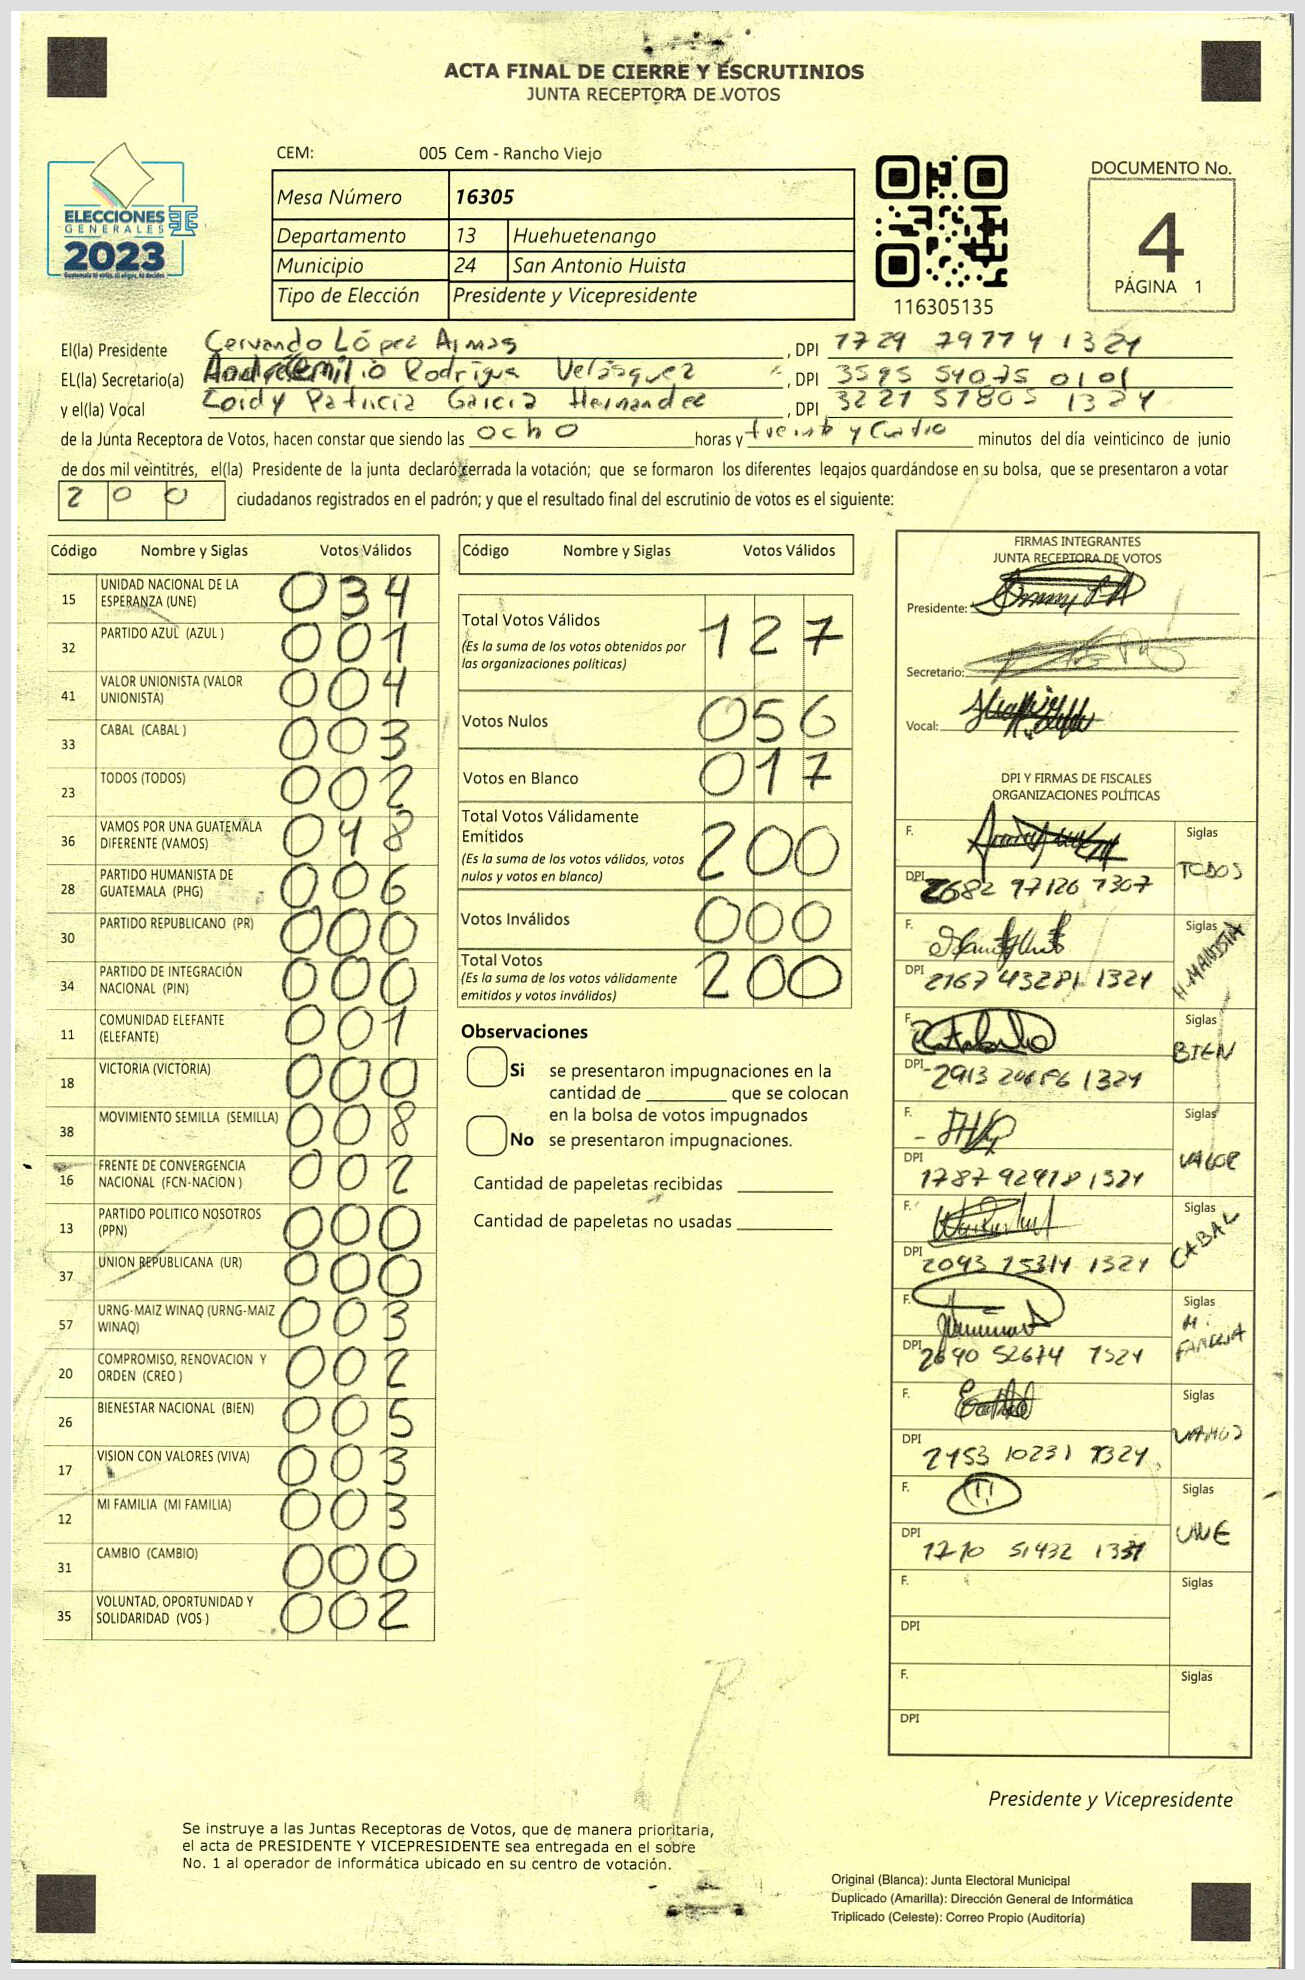 ACTA FINAL DE CIERRE Y ESCRUTINIOS
JUNTA RECEPTORA DE VOTOS
ELECCIONES
GENERALES
2023
CEM: 005 Cem - Rancho Viejo
Mesa Número 16305
Departamento 13 Huehuetenango
Municipio 24 San Antonio Huista
Tipo de Elección Presidente y Vicepresidente
116305135
DOCUMENTO No.
4
PÁGINA 1
El(la) Presidente López , DPI
EL(la) Secretario(a) Emilio Velásquez , DPI
y el(la) Vocal Patricia Garcia Hernandez , DPI
de la Junta Receptora de Votos, hacen constar que siendo las ocho horas y treinta y Cuatro minutos del día veinticinco de junio
de dos mil veintitrés, el(la) Presidente de la junta declaró cerrada la votación; que se formaron los diferentes legajos quardándose en su bolsa, que se presentaron a votar
200 ciudadanos registrados en el padrón; y que el resultado final del escrutinio de votos es el siguiente:
Código Nombre y Siglas Votos Válidos
15 UNIDAD NACIONAL DE LA ESPERANZA (UNE) 034
32 PARTIDO AZUL (AZUL ) 001
41 VALOR UNIONISTA (VALOR UNIONISTA) 004
33 CABAL (CABAL ) 003
23 TODOS (TODOS) 002
36 VAMOS POR UNA GUATEMALA DIFERENTE (VAMOS) 048
28 PARTIDO HUMANISTA DE GUATEMALA (PHG) 006
30 PARTIDO REPUBLICANO (PR) 000
34 PARTIDO DE INTEGRACIÓN NACIONAL (PIN) 000
11 COMUNIDAD ELEFANTE (ELEFANTE) 001
18 VICTORIA (VICTORIA) 000
38 MOVIMIENTO SEMILLA (SEMILLA) 008
16 FRENTE DE CONVERGENCIA NACIONAL (FCN-NACION ) 002
13 PARTIDO POLITICO NOSOTROS (PPN) 000
37 UNION REPUBLICANA (UR) 000
57 URNG-MAIZ WINAQ (URNG-MAIZ WINAQ) 003
20 COMPROMISO, RENOVACION Y ORDEN (CREO ) 002
26 BIENESTAR NACIONAL (BIEN) 005
17 VISION CON VALORES (VIVA) 003
12 MI FAMILIA (MI FAMILIA) 003
31 CAMBIO (CAMBIO) 000
35 VOLUNTAD, OPORTUNIDAD Y SOLIDARIDAD (VOS ) 002
Código Nombre y Siglas Votos Válidos
Total Votos Válidos 127
(Es la suma de los votos obtenidos por
las organizaciones políticas)
Votos Nulos 056
Votos en Blanco 017
Total Votos Válidamente
Emítidos 200
(Es la suma de los votos válidos, votos
nulos y votos en blanco)
Votos Inválidos 000
Total Votos 200
(Es la suma de los votos válidamente
emitidos y votos inválidos)
Observaciones
Si se presentaron impugnaciones en la
cantidad de que se colocan
en la bolsa de votos impugnados
No se presentaron impugnaciones.
Cantidad de papeletas recibidas
Cantidad de papeletas no usadas
FIRMAS INTEGRANTES
JUNTA RECEPTORA DE VOTOS
Presidente:
Secretario:
Vocal:
DPI Y FIRMAS DE FISCALES
ORGANIZACIONES POLÍTICAS
F. Siglas
DPI 2682 97126 1307 TODOS
F. Siglas
DPI 2167 43281 1324 HUMANISTA
F. Siglas
DPI BIEN
F. Siglas
DPI VALOR
F. Siglas
DPI CABAL
F. Siglas
DPI M. FAMILIA
F. Siglas
DPI 2453 10231 1324 VAMOS
F. Siglas
DPI UNE
F. Siglas
DPI
F. Siglas
DPI
Presidente y Vicepresidente
Se instruye a las Juntas Receptoras de Votos, que de manera prioritaria,
el acta de PRESIDENTE Y VICEPRESIDENTE sea entregada en el sobre
No. 1 al operador de informática ubicado en su centro de votación.
Original (Blanca): Junta Electoral Municipal
Duplicado (Amarilla): Dirección General de Informática
Triplicado (Celeste): Correo Propio (Auditoría)